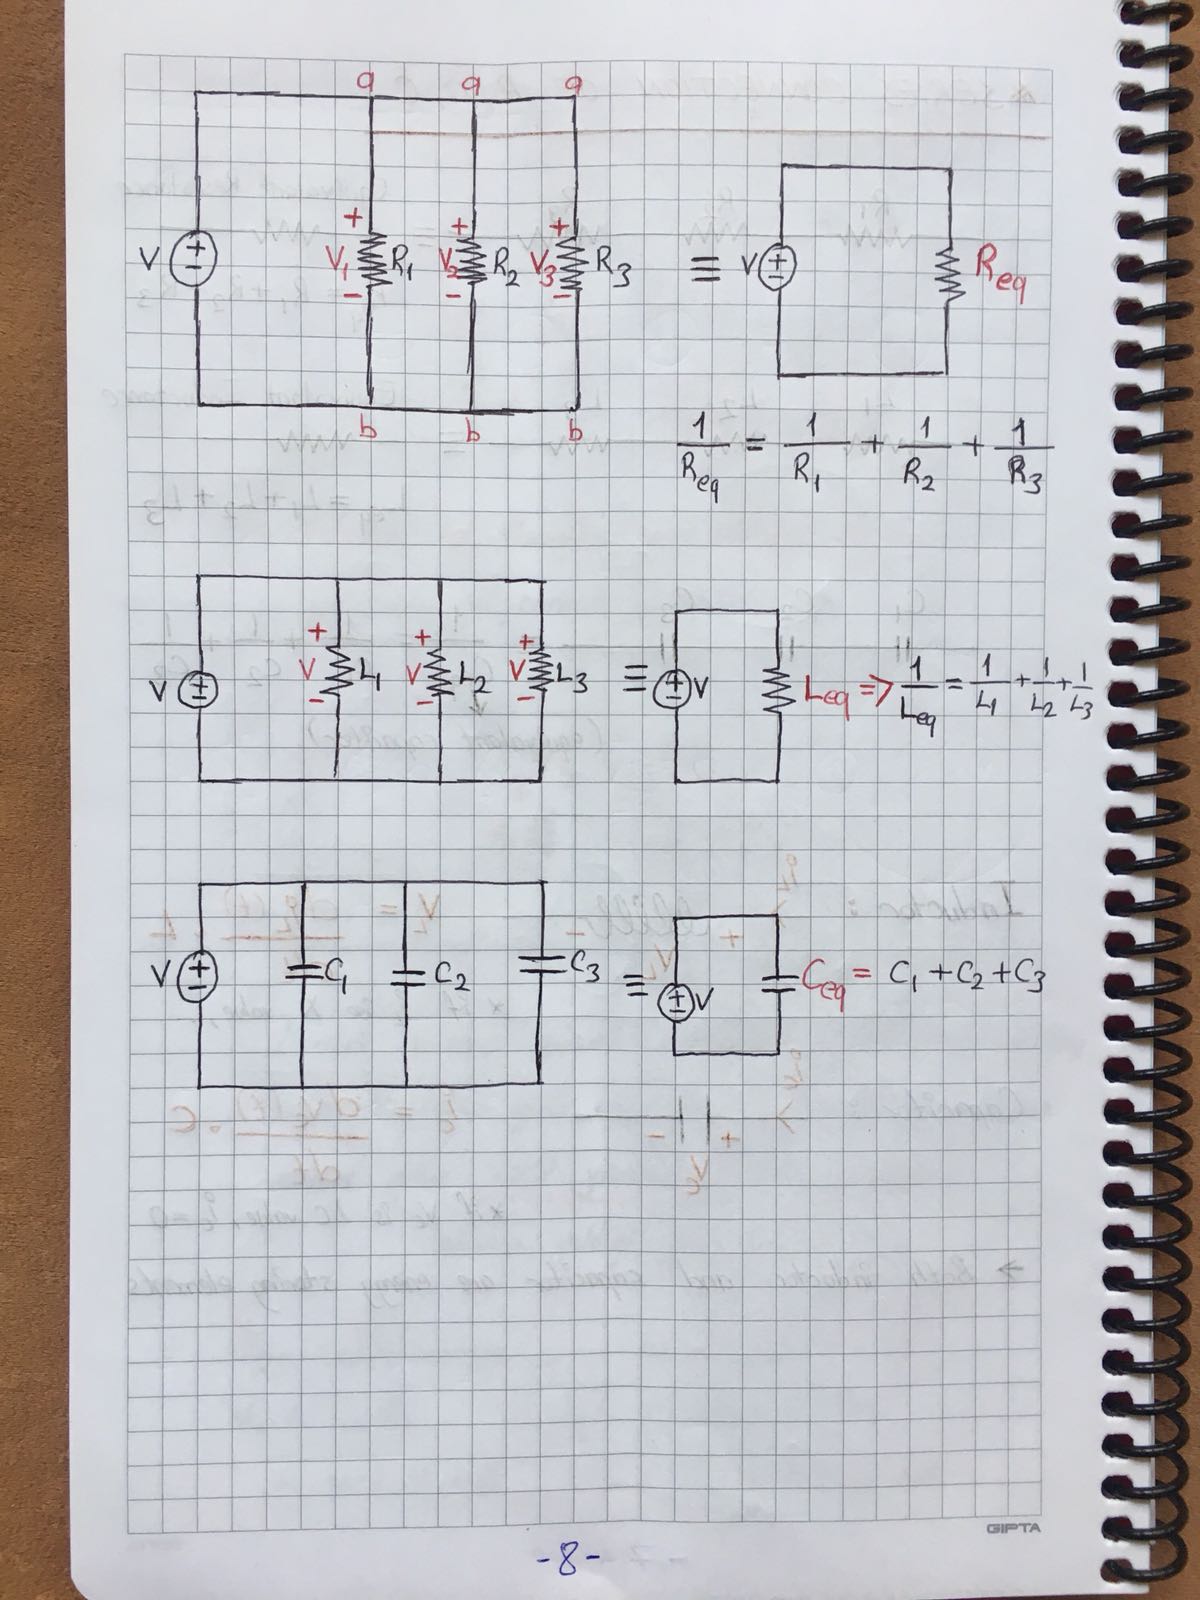 a a a
V + - + V1 - R1 + V2 - R2 + V3 - R3 ≡ V + - Req
b b b
1/Req = 1/R1 + 1/R2 + 1/R3
V + - + V - L1 + V - L2 + V - L3 ≡ + - V Leq => 1/Leq = 1/L1 + 1/L2 + 1/L3
V + - C1 C2 C3 ≡ + - V Ceq = C1 + C2 + C3
GIPTA
-8-